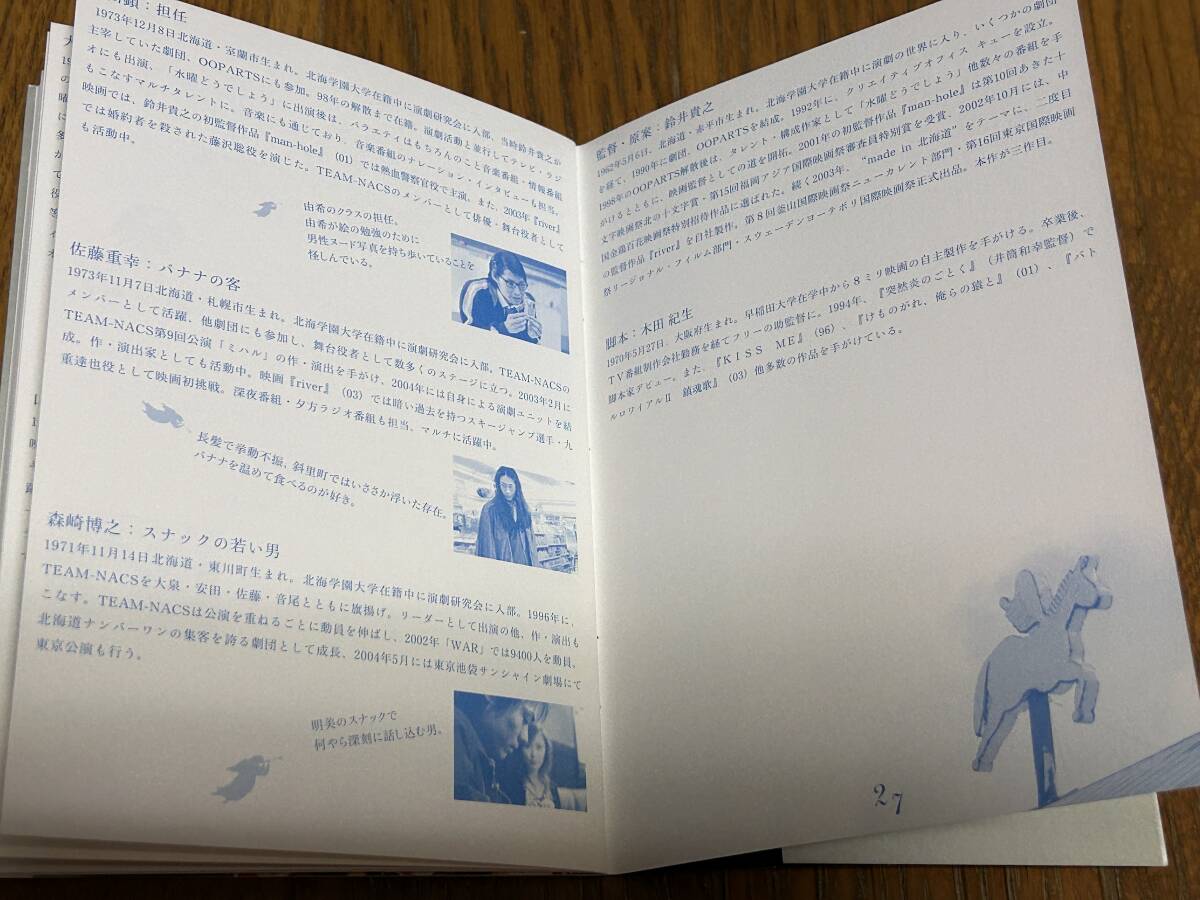 顕：担任
1973年12月8日北海道・室蘭市生まれ。北海学園大学在籍中に演劇研究会に入部、当時鈴井貴之が
主宰していた劇団、OOPARTSにも参加。98年の解散まで在籍。演劇活動と並行してテレビ・ラジ
オにも出演、「水曜どうでしょう」に出演後は、バラエティはもちろんのこと音楽番組・情報番組
もこなすマルチタレントに。音楽にも通じており、音楽番組のナレーション・インタビューも担当。
映画では、鈴井貴之の初監督作品『man-hole』（01）では熱血警察官役で主演。また、2003年『river』
では婚約者を殺された藤沢聡役を演じた。TEAM-NACSのメンバーとして俳優・舞台役者として
も活動中。
由希のクラスの担任。
由希が絵の勉強のために
男性ヌード写真を持ち歩いていることを
怪しんでいる。
佐藤重幸：バナナの客
1973年11月7日北海道・札幌市生まれ。北海学園大学在籍中に演劇研究会に入部。TEAM-NACSの
メンバーとして活躍、他劇団にも参加し、舞台役者として数多くのステージに立つ。2003年2月に
TEAM-NACS第9回公演「ミハル」の作・演出を手がけ、2004年には自身による演劇ユニットを結
成。作・演出家としても活動中。映画『river』（03）では暗い過去を持つスキージャンプ選手・九
重達也役として映画初挑戦。深夜番組・夕方ラジオ番組も担当、マルチに活躍中。
長髪で挙動不振、斜里町ではいささか浮いた存在。
バナナを温めて食べるのが好き。
森崎博之：スナックの若い男
1971年11月14日北海道・東川町生まれ。北海学園大学在籍中に演劇研究会に入部。1996年に、
TEAM-NACSを大泉・安田・佐藤・音尾とともに旗揚げ。リーダーとして出演の他、作・演出も
こなす。TEAM-NACSは公演を重ねるごとに動員を伸ばし、2002年「WAR」では9400人を動員。
北海道ナンバーワンの集客を誇る劇団として成長、2004年5月には東京池袋サンシャイン劇場にて
東京公演も行う。
明美のスナックで
何やら深刻に話し込む男。
監督・原案：鈴井貴之
1962年5月6日、北海道・赤平市生まれ。北海学園大学在籍中に演劇の世界に入り、いくつかの劇団
を経て、1990年に劇団、OOPARTSを結成。1992年に、クリエイティブオフィス キューを設立。
1998年のOOPARTS解散後は、タレント・構成作家として「水曜どうでしょう」他数々の番組を手
がけるとともに、映画監督としての道を開拓。2001年の初監督作品『man-hole』は第10回あきた十
文字映画祭北の十文字賞・第15回福岡アジア国際映画祭審査員特別賞を受賞、2002年10月には、中
国金鶏百花映画祭特別招待作品に選ばれた。続く2003年、“made in 北海道”をテーマに、二度目
の監督作品『river』を自社製作。第８回釜山国際映画祭ニューカレント部門・第16回東京国際映画
祭リージョナル・フィルム部門・スウェーデンヨーテボリ国際映画祭正式出品。本作が三作目。
脚本：木田 紀生
1970年5月27日、大阪府生まれ。早稲田大学在学中から８ミリ映画の自主製作を手がける。卒業後、
ＴＶ番組制作会社勤務を経てフリーの助監督に。1994年、『突然炎のごとく』（井筒和幸監督）で
脚本家デビュー。また、『ＫＩＳＳ ＭＥ』（96）、『けものがれ、俺らの猿と』（01）、『バト
ルロワイアルⅡ 鎮魂歌』（03）他多数の作品を手がけている。
27